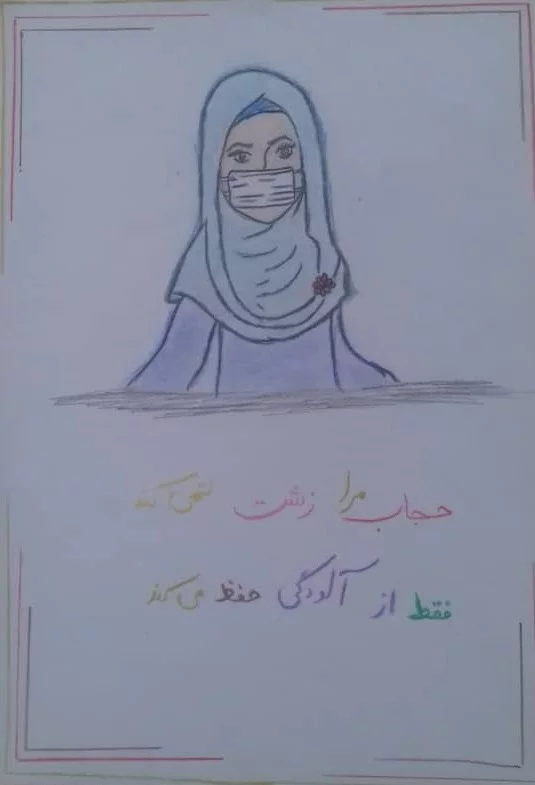 حجاب مرا زشت نمی کند
فقط از آلودگی حفظ می کند